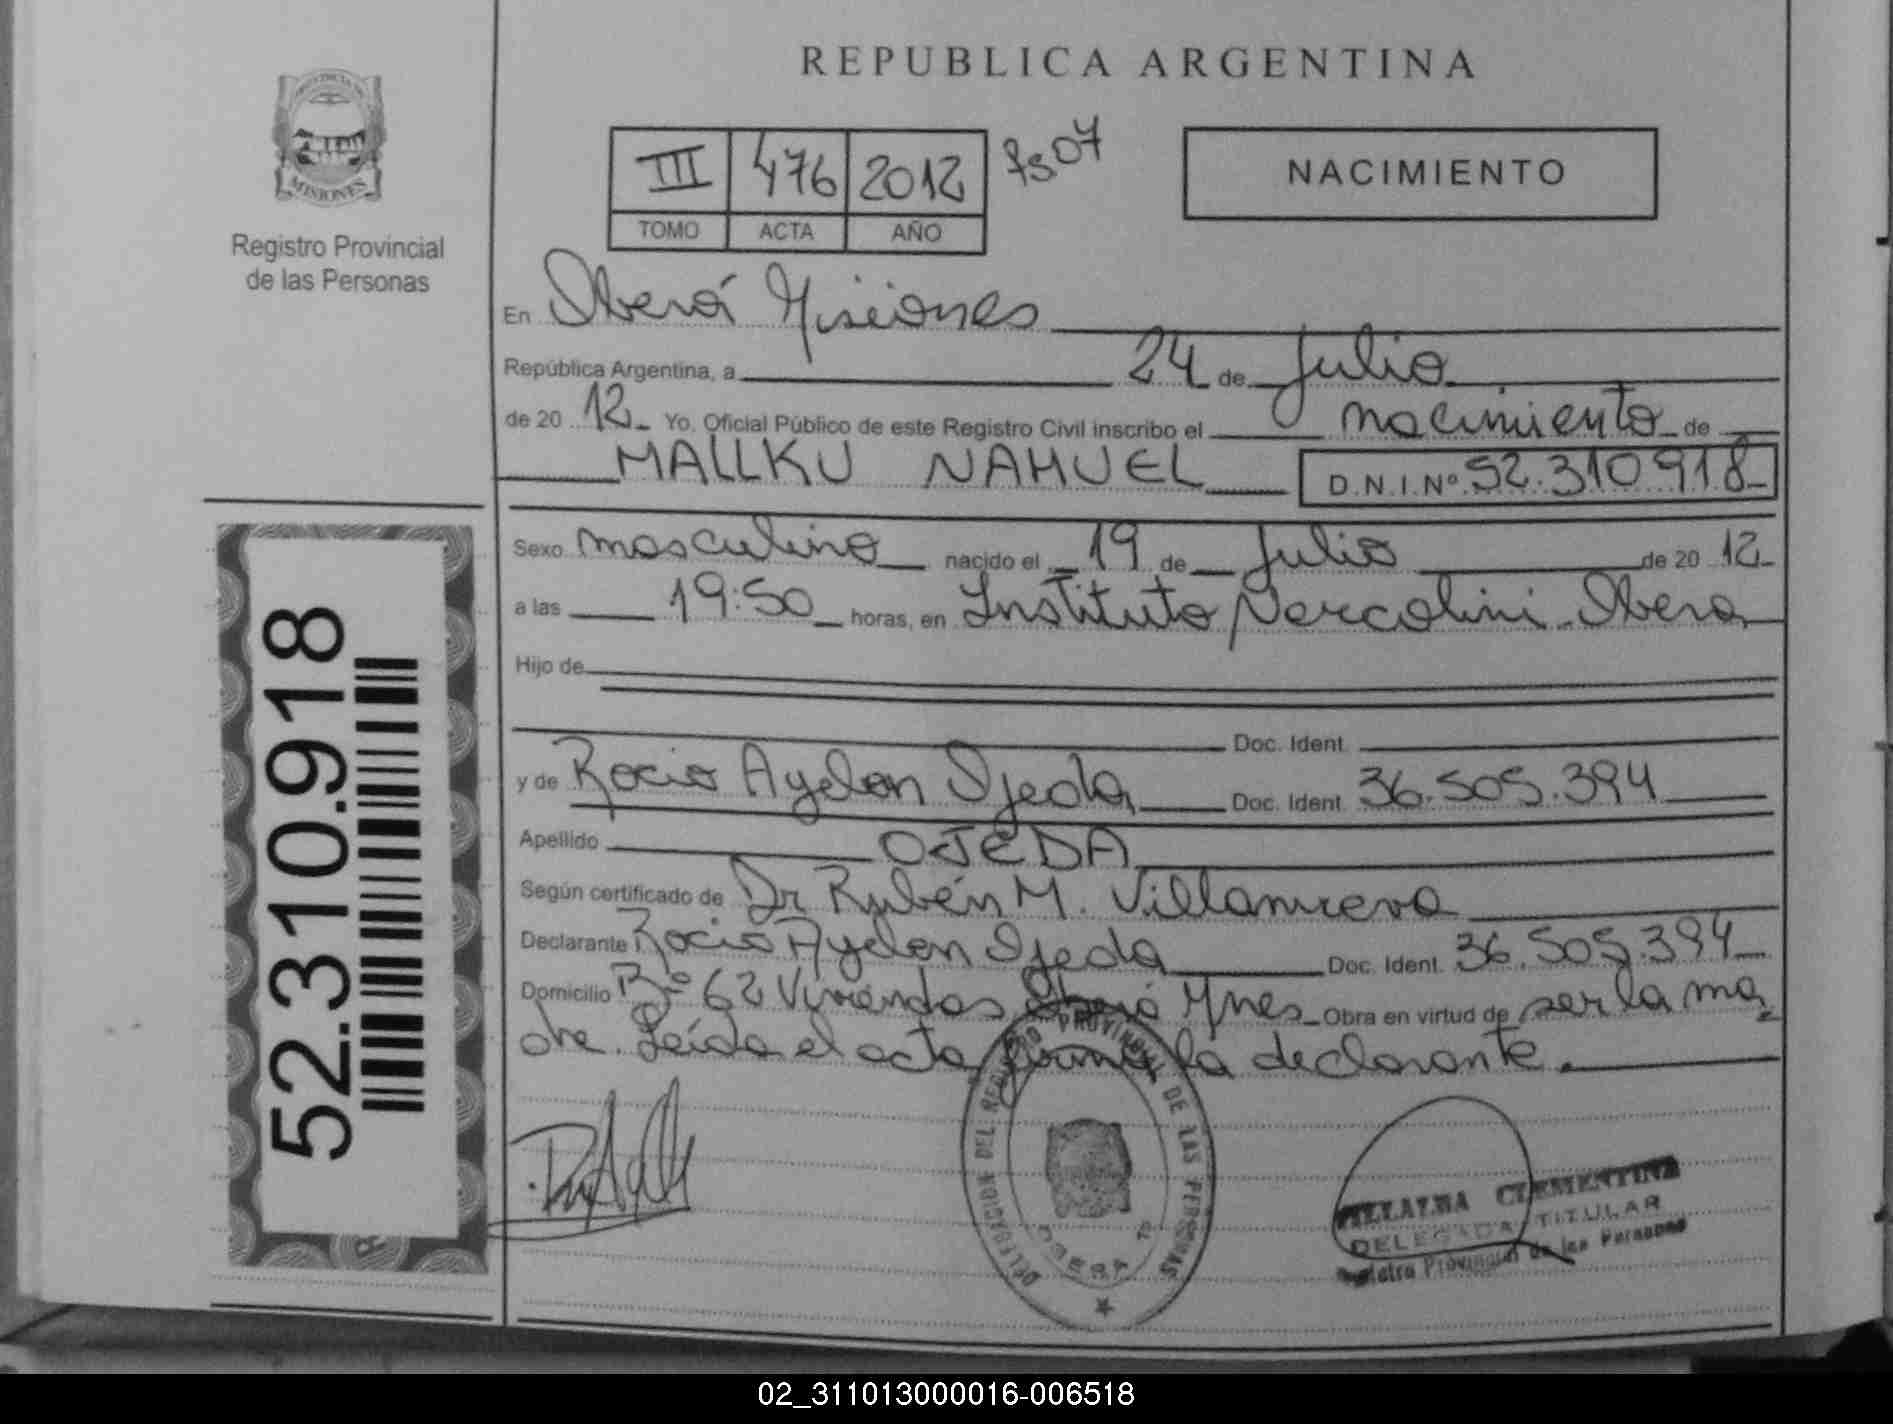 REPUBLICA ARGENTINA
MISIONES
Registro Provincial
de las Personas
III 476 2012 fs 07
TOMO ACTA AÑO
NACIMIENTO
En Oberá Misiones
República Argentina, a 24 de Julio
de 20 12 Yo, Oficial Público de este Registro Civil inscribo el nacimiento de
MALLKU NAHUEL D.N.I.Nº 52.310.918
Sexo masculino nacido el 19 de Julio de 20 12
a las 19:50 horas, en Instituto Oberá
Hijo de
Doc. Ident.
y de Rocio Ayelen Ojeda Doc. Ident. 36.505.394
Apellido OJEDA
Según certificado de Dr Rubén M. Villanueva
Declarante Rocio Ayelen Ojeda Doc. Ident. 36.505.394
Domicilio Bº 62 Viviendas Oberá Mnes Obra en virtud de ser la ma
dre. Leída el acta firma la declarante.
52.310.918
DELEGACION DEL REGISTRO PROVINCIAL DE LAS PERSONAS
VILLALBA CLEMENTINA
DELEGADA TITULAR
Registro Provincial de las Personas
02_311013000016-006518